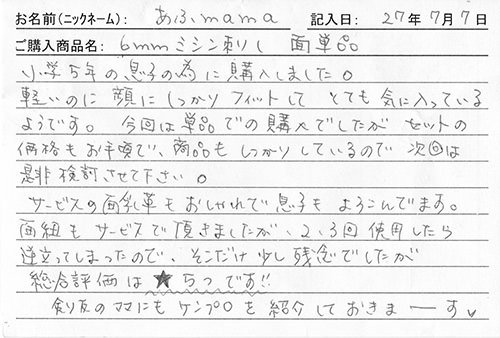 お名前(ニックネーム): あふ mama 記入日: 27年 7月 7日
ご購入商品名: 6mmミシン刺し 面単品
小学5年の息子の為に購入しました。
軽いのに顔にしっかりフィットして とても気に入っている
ようです。 今回は単品での購入でしたが セットの
価格もお手頃で、商品もしっかりしているので 次回は
是非検討させて下さい。
サービスの面乳革もおしゃれで息子もよろこんでます。
面紐もサービスで頂きましたが、2、3回使用したら
逆立ってしまったので、そこだけ少し残念でしたが
総合評価は★5つです!!
剣友のママにもケンプロを紹介しておきまーす